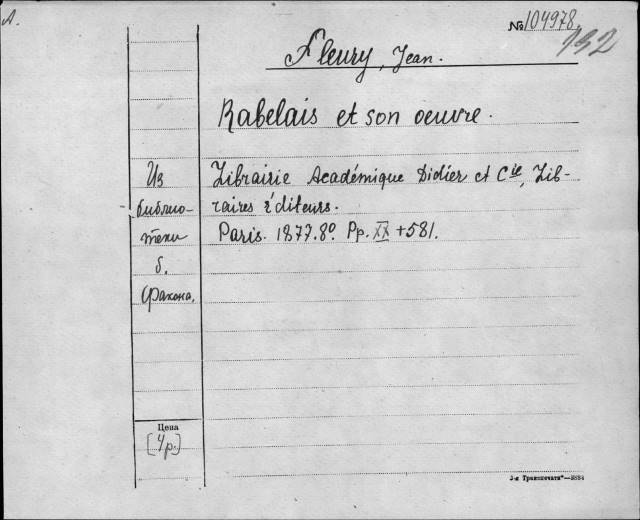 А.
№ 104978.
132
Fleury, Jean.
Rabelais et son oeuvre.
Из
библио-
теки
б.
Факона.
Librairie Académique Didier et Cie, Lib-
raires éditeurs.
Paris. 1877. 8º. Pp. XX + 581.
Цена
[4 р.]